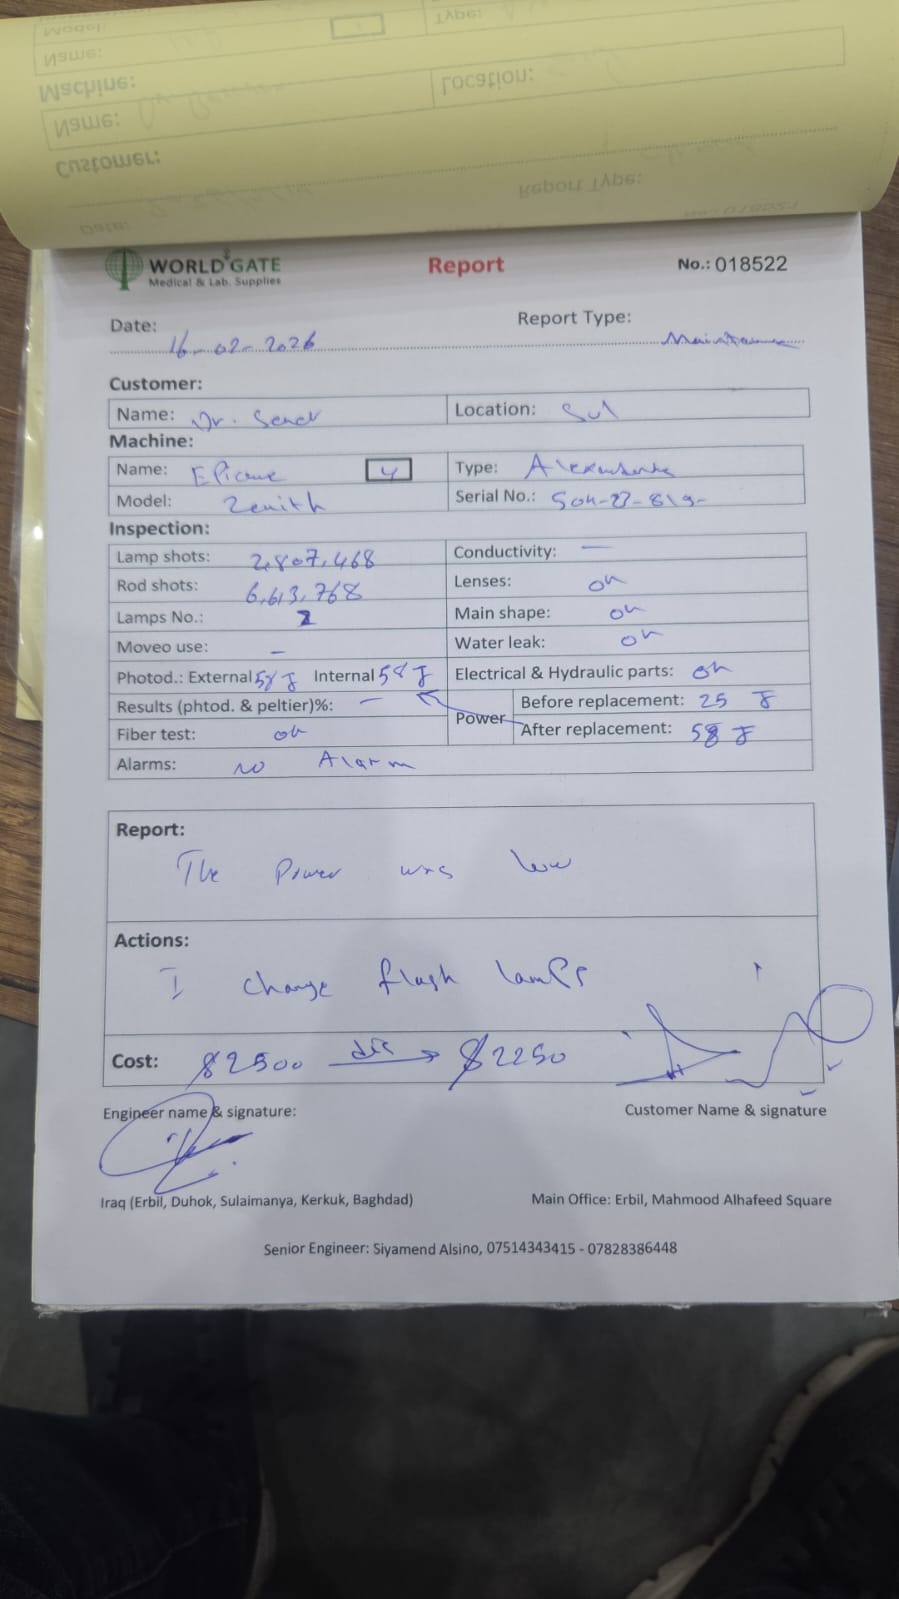 WORLD GATE
Medical & Lab. Supplies
Report
No.: 018522
Date: 16-02-2026
Report Type: Maintenance
Customer:
Name: Dr.
Location: Sul
Machine:
Name: 4
Type:
Model: Zenith
Serial No.:
Inspection:
Lamp shots: 2,807,468
Conductivity: —
Rod shots: 6,613,768
Lenses: ok
Lamps No.: 2
Main shape: ok
Moveo use: –
Water leak: ok
Photod.: External 58 J Internal 58 J
Electrical & Hydraulic parts: ok
Results (phtod. & peltier)%: –
Power
Before replacement: 25 J
Fiber test: ok
After replacement: 58 J
Alarms: no Alarm
Report:
The Power was low
Actions:
I change flash lamps
Cost: $2500 dis → $2250
Engineer name & signature:
Customer Name & signature
Iraq (Erbil, Duhok, Sulaimanya, Kerkuk, Baghdad)
Main Office: Erbil, Mahmood Alhafeed Square
Senior Engineer: Siyamend Alsino, 07514343415 - 07828386448